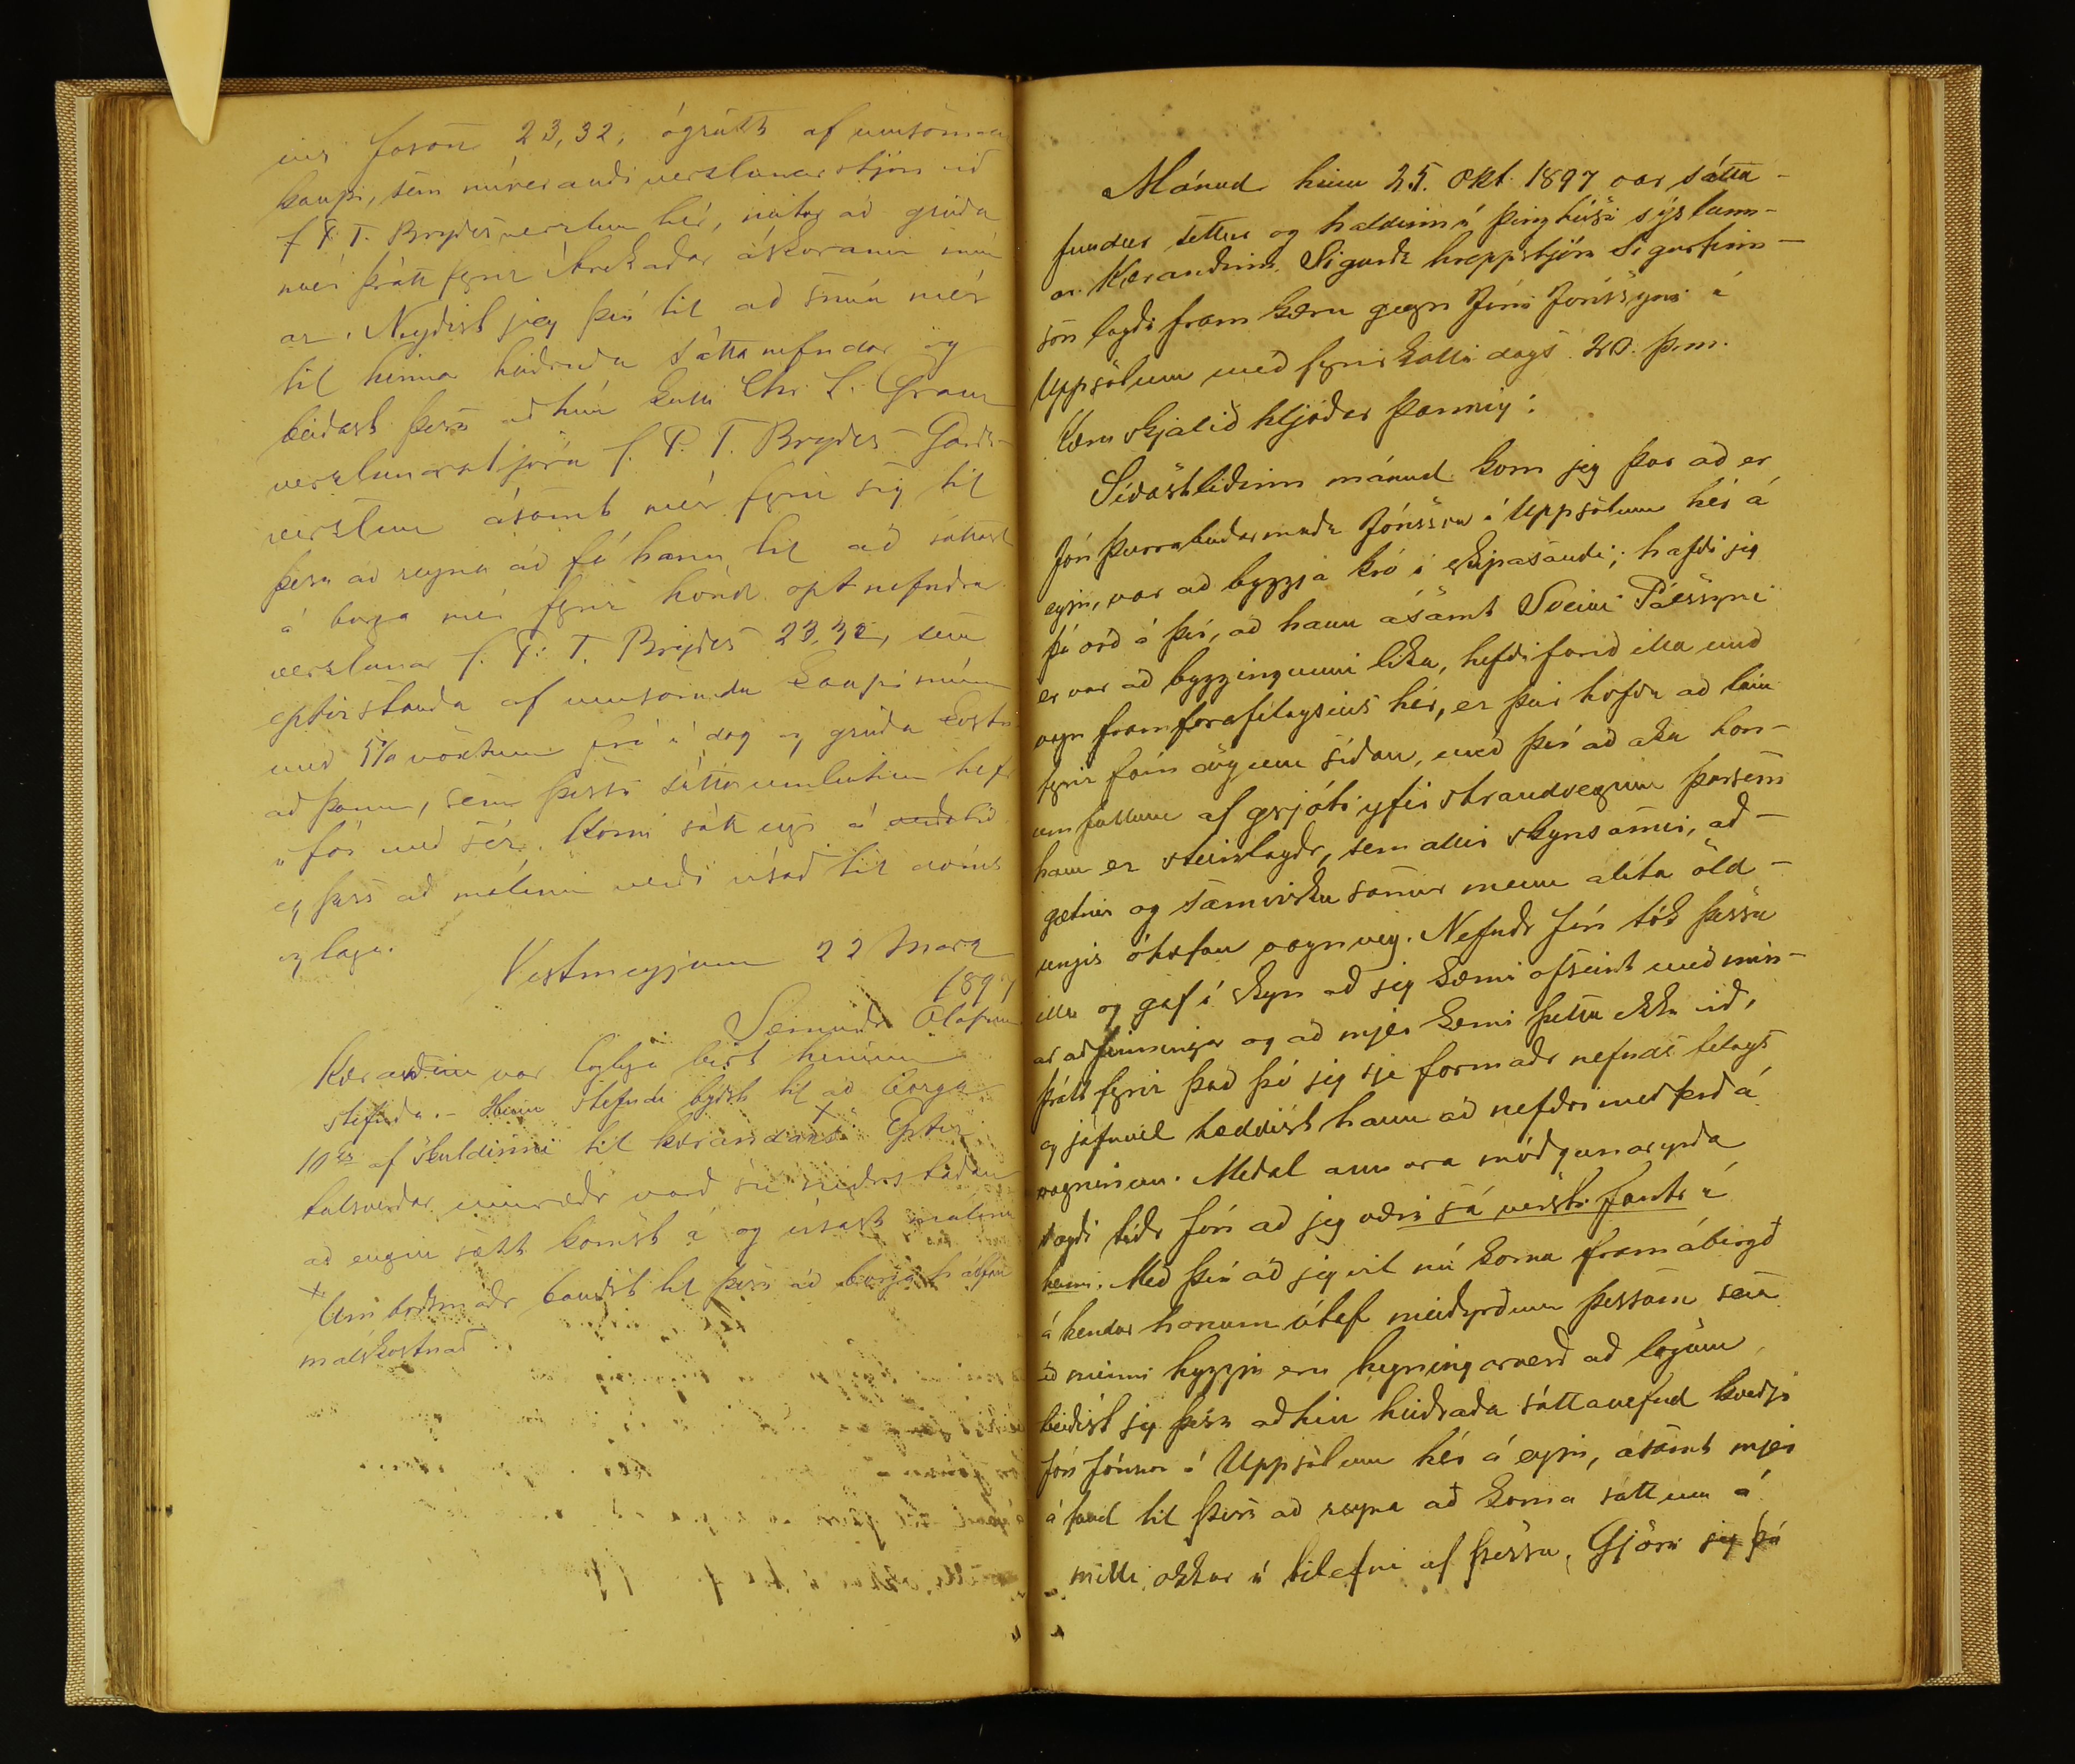 ins Jóson 23,32, ógreitt af umsömdu
kaupi, sem núverandi verslunarstjóri við
J. P. T. Brydesverzlun hér, neitar að greiða
mér þrátt fyrir ítrekaðar áskoranir mín-
ar. Neyðist jeg því til að snúa mér
til hinna heiðruðu sáttanefndar og
beiðast þess að hún kalli Chr. L.
verzlunarstjóra J. P. T. Brydes - Garðs-
verzlun ásamt mér fyrir sig til
þess að reyna að fá hann til að sáttast
á borga mér fyrir hönd optnefndra
verzlunar J. P. T. Brydes 23,32, sem
eptirstanda af umsömdu kaupi mínu
með 5% vöxtum frá í dag og greiða kostn
að þann, sem þessi sáttaumleitun hefr
í för með sér. Komi sátt eigi á
eg þess að málinu verði vísað til dóms
og laga.
Vestmeyjum 22 Marz
1897
Sæmundr Olafsson
Kærandinn var löglega birt hennar
stefnda. - Hinn stefndi bydst til að borga
10 kr af skuldinni til kærandans + Eptir
talsverðar umræðr varð sú niðrstaðan
að engin sætt komst á og vísast málinu
+ Umboðsmaðr bauðst til þess að borga hálfan
málskostnað.
Mánud. hinn 25. Okt. 1897 var sátta-
fundur settur og haldinn á þinghúsi sýslunn-
ar. Kærandinn Sigurðr hreppstjóri Sigurfinns-
son lagði fram kæru gegn Jóni Jónssyni á
Uppsölum með fyrirkalli dags 20. þ.m.
Kæruskjalið hljóðar þannig:
Síðastliðinn mánud kom jeg þar að er
Jón þurrabúðarmaðr Jónsson á Uppsölum hér á
eyju, var að byggja kró í skipasandi; hafði jeg
þá orð á því, að hann ásamt Sveini Pálssyni
er var að byggingunni líka, hefði farið illa með
vagn framfarafélagsins hér, er þeir höfðu að láni
fyrir fám dögum síðan, með því að aka hon-
um fullum af grjóti yfir strandveginn þarsem
hann er steinlagðr, sem allir skynsamir, að-
gætnir og samvizkusamir menn álíta öld-
ungis óhæfan vagnveg. Nefndr Jón tók þessu
illa og gaf í skyn að jeg kæmi ofseint með mín-
ar aðfinningar og að mjer kæmi þetta ekki við,
þrátt fyrir það þó jeg sje formaðr nefnds felags
og jafnvel hæddist hann að nefðri meðferð á
vagninum. Meðal annara móðgunaryrða
sagði téðr Jón að jeg væri sá versti fantr í
heimi. Með því að jeg vil nú koma fram ábirgð
á hendur honum útaf meiðyrðum þessum sem
að minni hyggju eru hegningarverð að lögum
beiðist jeg þess að hin heiðraða sáttanefnd kveðji
Jón Jónsson á Uppsölum hér á eyju, ásamt mjer
á fund til þess að reyna að koma sáttum á
milli okkar í tilefni af þessu, Gjöri jeg þá